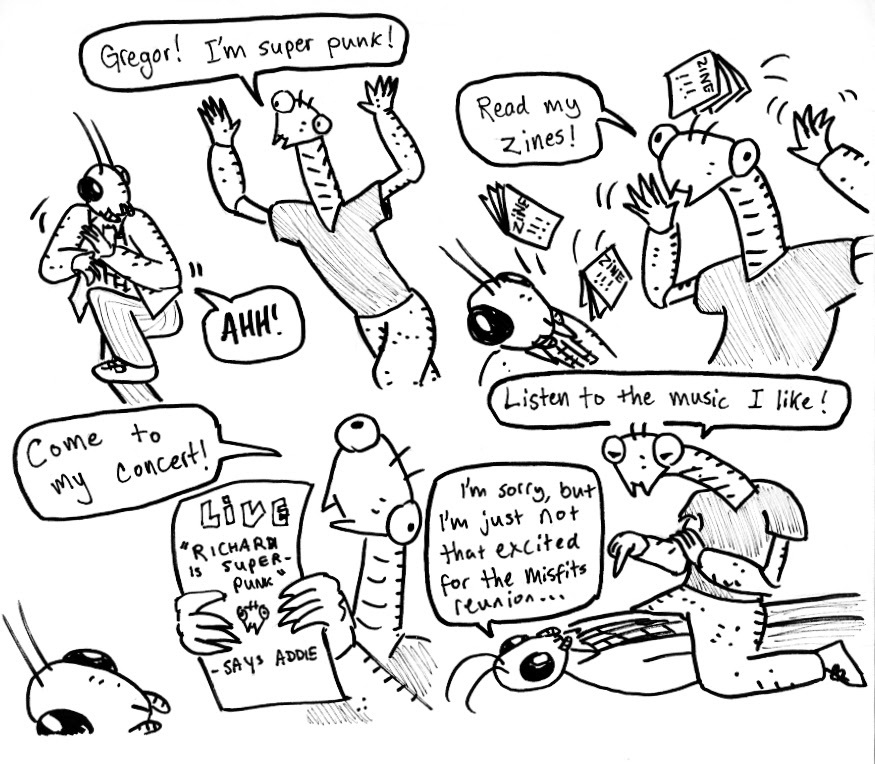 Gregor! I'm super punk!
AHH!
Read my
zines!
ZINE
!!!
ZINE
!!!
ZINE
!!!
Come to
my concert!
LIVE
"RICHARD
IS SUPER-
PUNK"
-SAYS ADDIE
Listen to the music I like!
I'm sorry, but
I'm just not
that excited
for the Misfits
reunion...